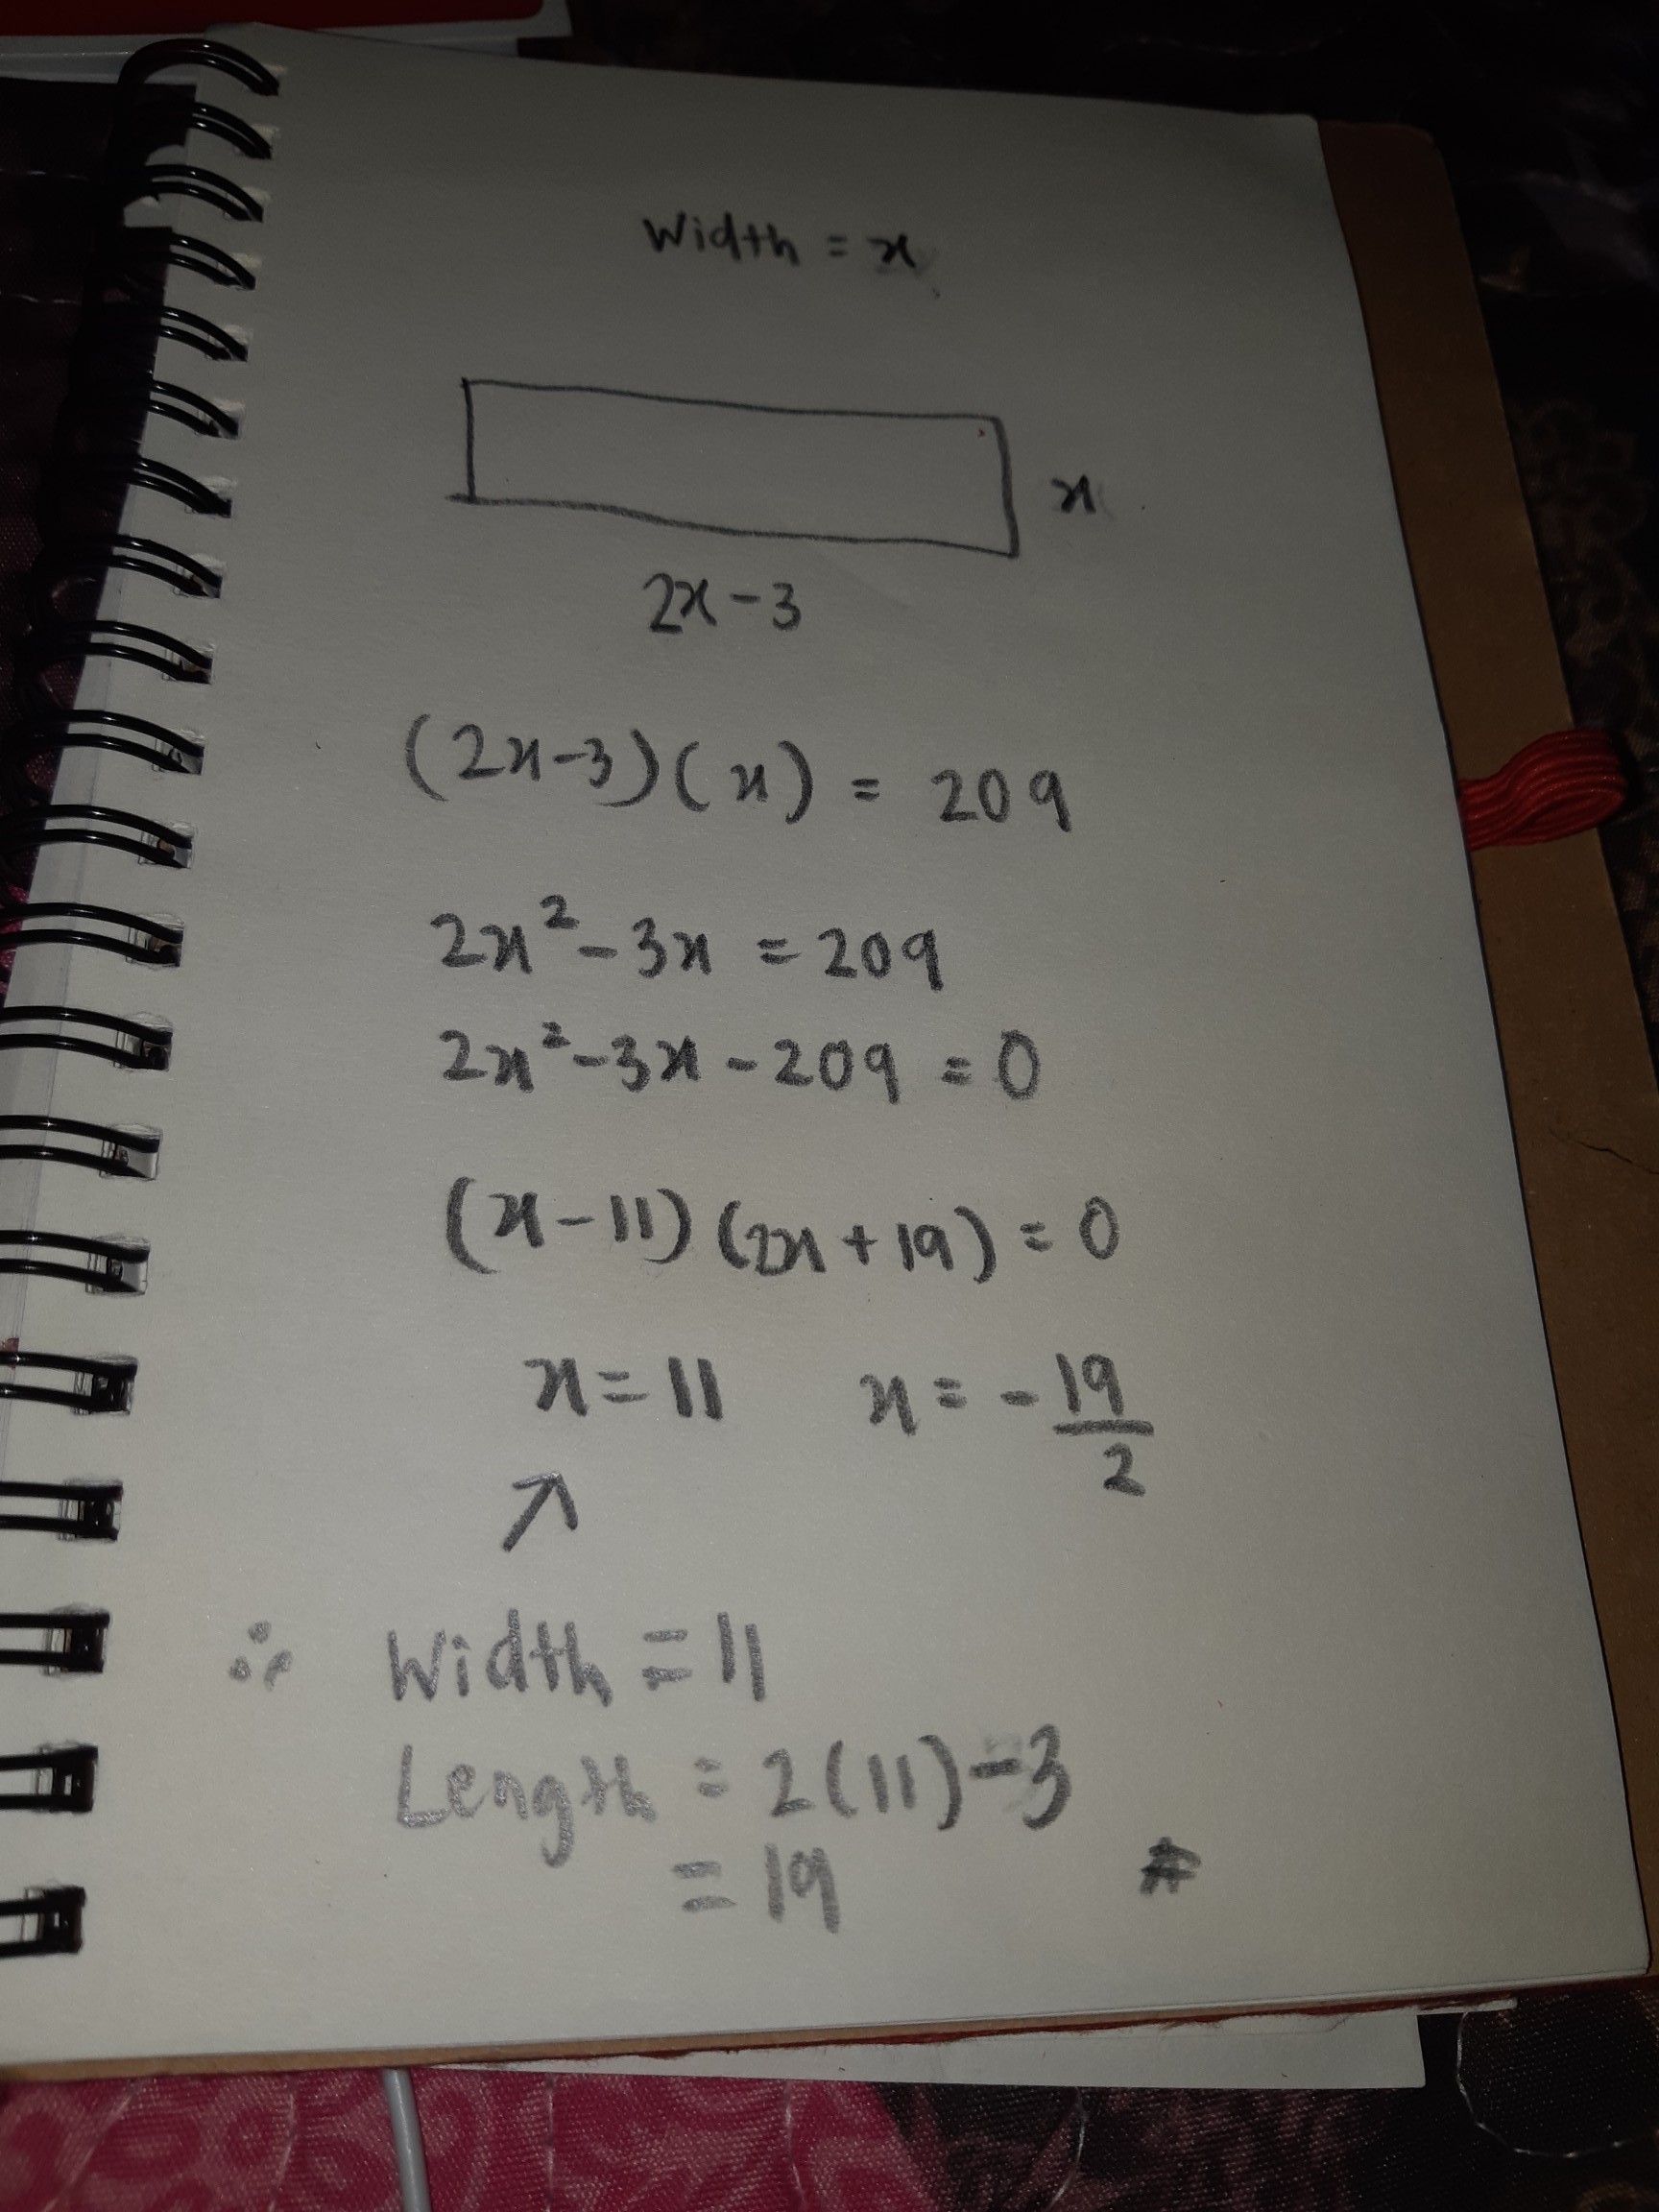 Width = x
x
2x - 3
(2x-3)(x) = 209
2x² - 3x = 209
2x² - 3x - 209 = 0
(x - 11)(2x + 19) = 0
x = 11 x = - 19/2
∴ Width = 11
Length = 2(11) - 3
= 19 #